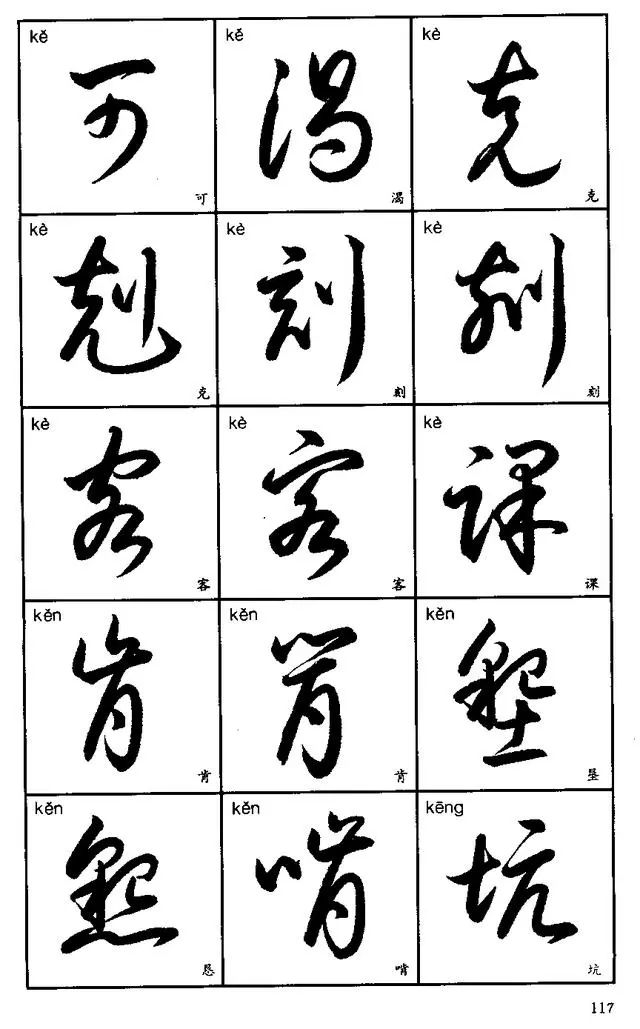 kě kě kè
可 渴 克
可 渴 克
kè kè kè
剋 刻 刻
克 刻 刻
kè kè kè
客 客 課
客 客 课
kěn kěn kěn
肯 肯 墾
肯 肯 垦
kěn kěn kēng
懇 啃 坑
恳 啃 坑
117